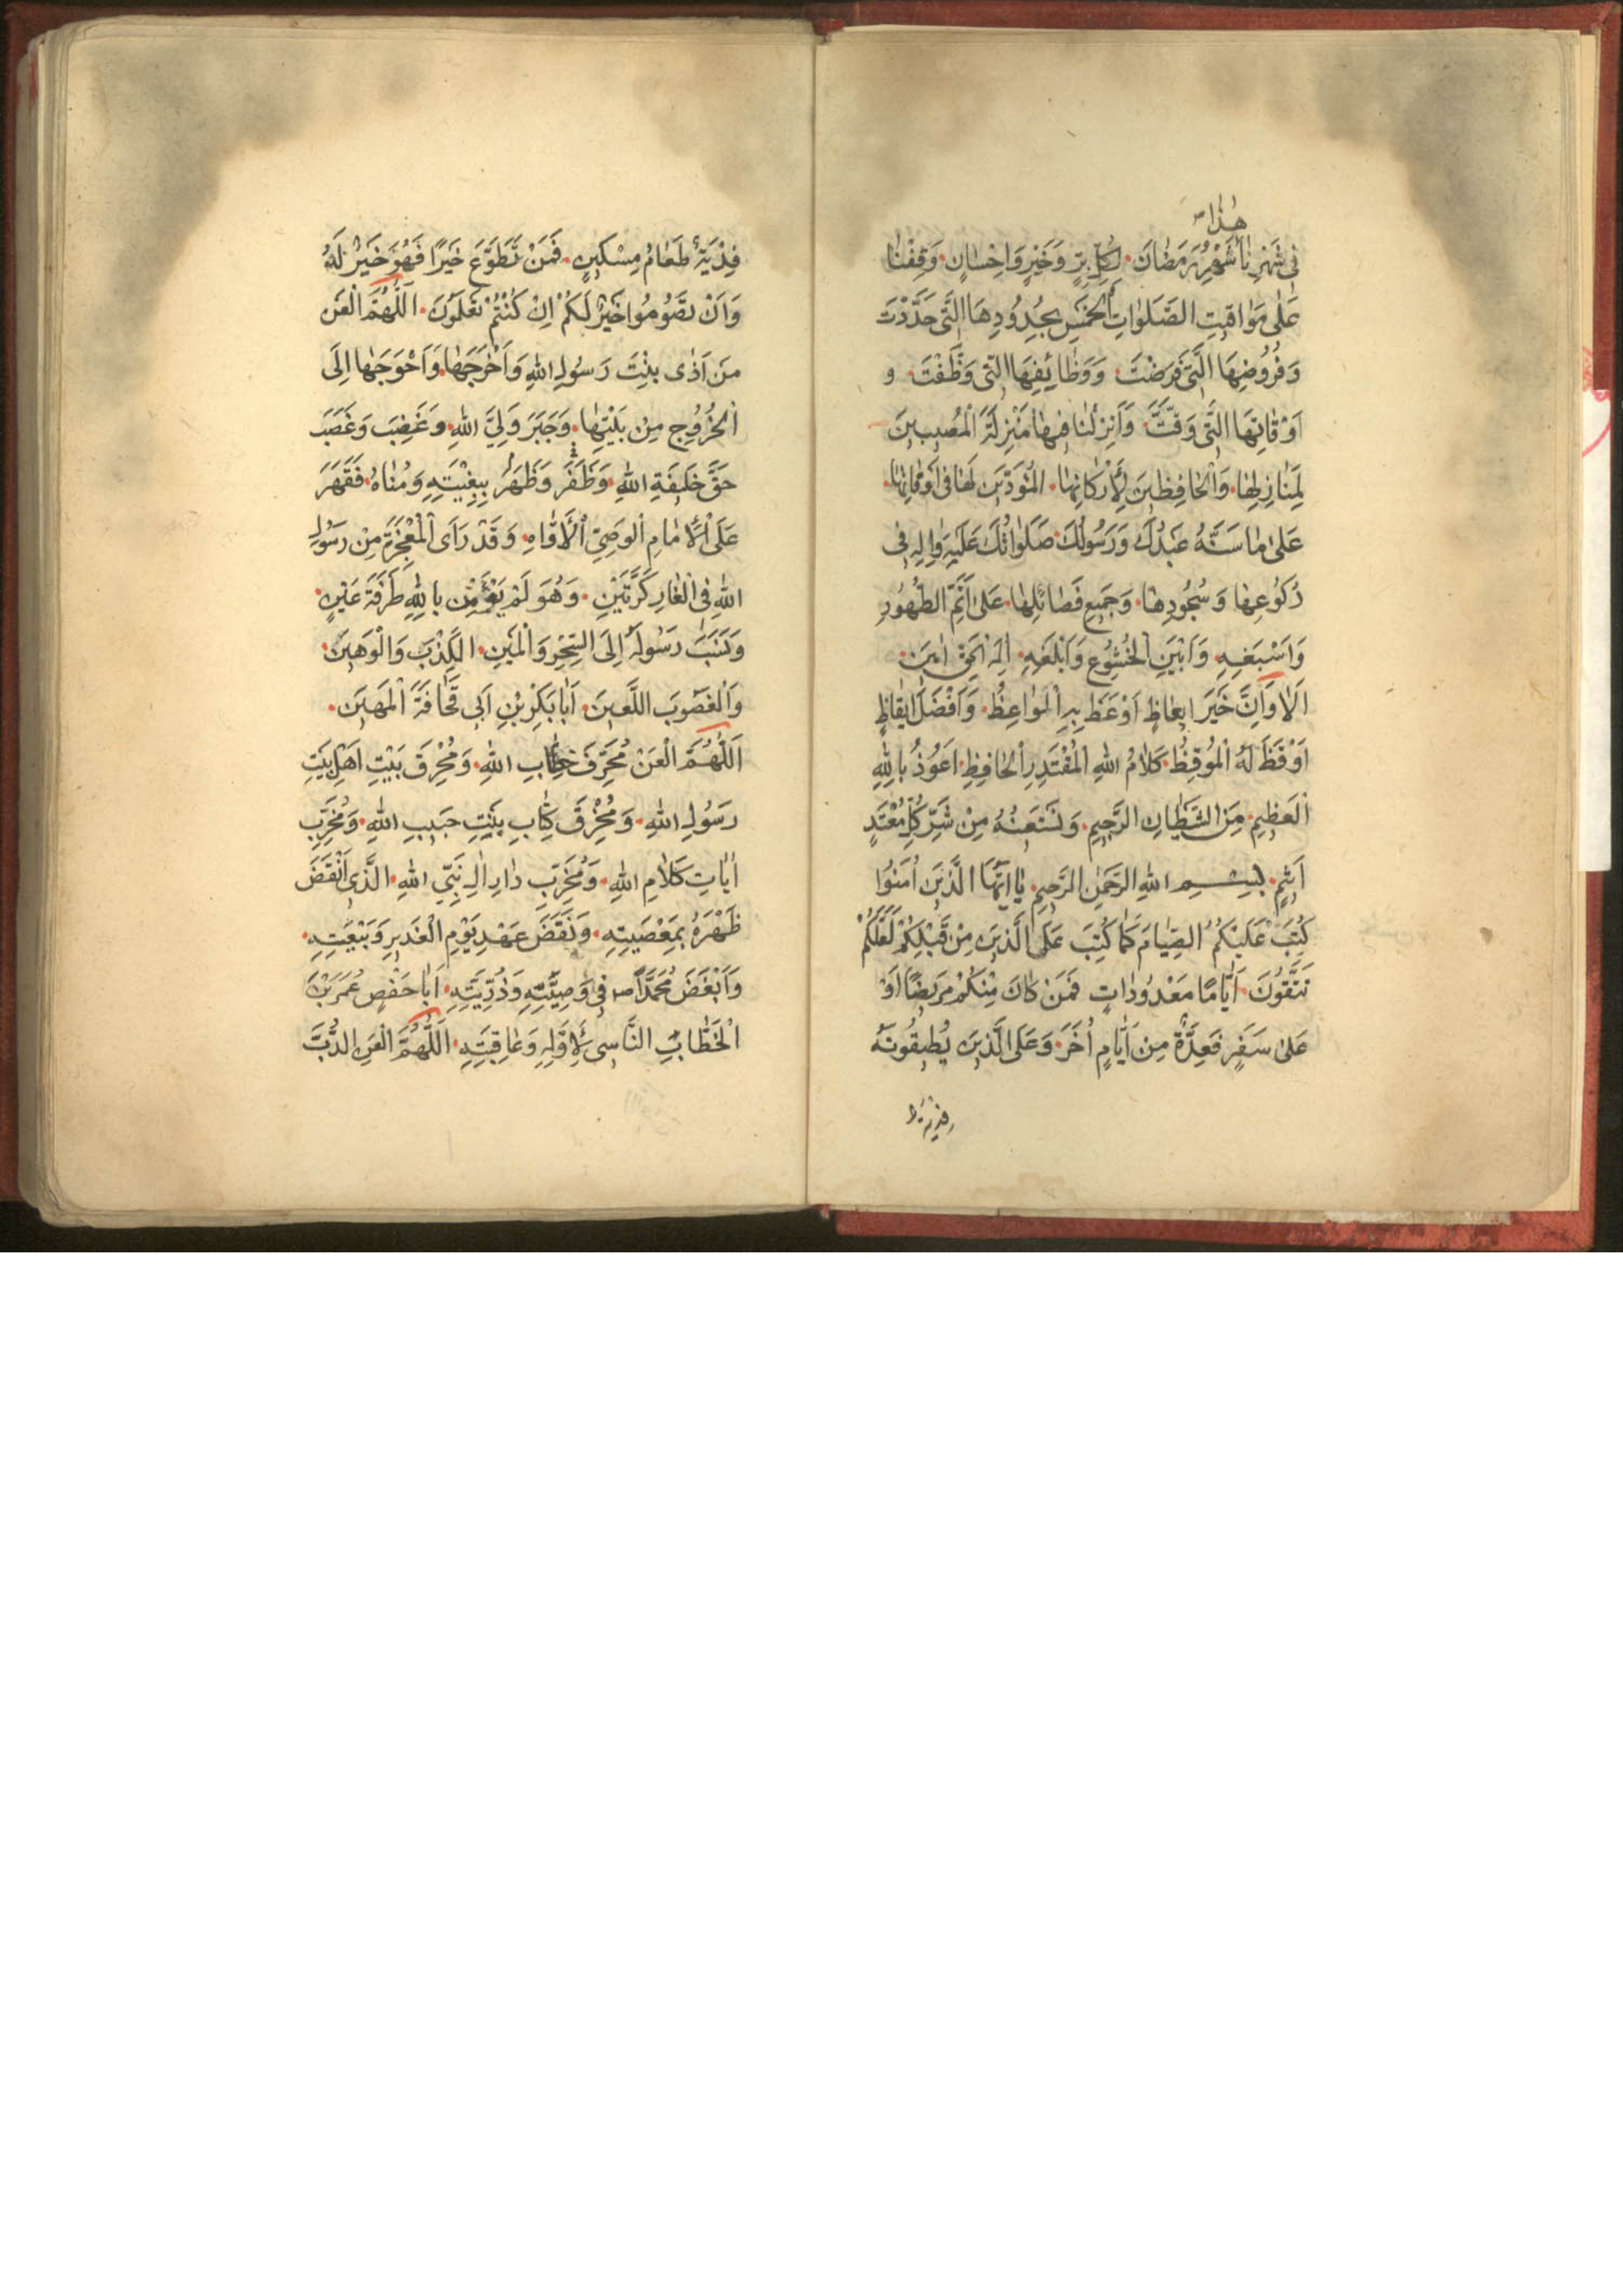 هٰذا
فى شَهْرِنا شَهْرِ رَمَضانَ لِكُلِّ بِرٍّ وَخَيْرٍ وَاِحْسانٍ وَقِفْنا
عَلٰى مَواقيتِ الصَّلَواتِ الْخَمْسِ بِحُدُودِهَا الَّتى حَدَّدْتَ
وَفُرُوضِهَا الَّتى فَرَضْتَ وَوَظائِفِهَا الَّتى وَظَّفْتَ وَ
اَوْقاتِهَا الَّتى وَقَّتَّ وَاَنْزِلْنا فيها مَنْزِلَةَ الْمُصيبينَ
لِمَنازِلِها وَالْحافِظينَ لِاَرْكانِها الْمُؤَدّينَ لَها فى اَوْقاتِها
عَلٰى ما سَنَّهُ عَبْدُكَ وَرَسُولُكَ صَلَواتُكَ عَلَيْهِ وَاٰلِهِ فى
رُكُوعِها وَسُجُودِها وَجَميعِ فَضائِلِها عَلٰى اَتَمِّ الطَّهُورِ
وَاَسْبَغِهِ وَاَبْيَنِ الْخُشُوعِ وَاَبْلَغِهِ اِلٰهَ الْحَقِّ اٰمينَ
اَلا وَاِنَّ خَيْرَ ايعاظٍ اَوْعَظَ بِهِ الْمَواعِظُ وَاَفْضَلَ ايقاظٍ
اَوْقَظَ لَهُ الْمُوقِظُ كَلامُ اللهِ الْمُقْتَدِرِ الْحافِظِ اَعُوذُ بِاللهِ
الْعَظيمِ مِنَ الشَّيْطانِ الرَّجيمِ وَنَسْتَعينُهُ مِنْ شَرِّ كُلِّ مُعْتَدٍ
اَثيمٍ بِسْمِ اللهِ الرَّحْمٰنِ الرَّحيمِ يا اَيُّهَا الَّذينَ اٰمَنُوا
كُتِبَ عَلَيْكُمُ الصِّيامُ كَما كُتِبَ عَلَى الَّذينَ مِنْ قَبْلِكُمْ لَعَلَّكُمْ
تَتَّقُونَ اَيّامًا مَعْدُوداتٍ فَمَنْ كانَ مِنْكُمْ مَريضًا اَوْ
عَلٰى سَفَرٍ فَعِدَّةٌ مِنْ اَيّامٍ اُخَرَ وَعَلَى الَّذينَ يُطيقُونَهُ
فدية ط
فِدْيَةٌ طَعامُ مِسْكينٍ فَمَنْ تَطَوَّعَ خَيْرًا فَهُوَ خَيْرٌ لَهُ
وَاَنْ تَصُومُوا خَيْرٌ لَكُمْ اِنْ كُنْتُمْ تَعْلَمُونَ اَللّٰهُمَّ الْعَنْ
مَنْ اَذٰى بِنْتَ رَسُولِ اللهِ وَاَخْرَجَها وَاَحْوَجَها اِلَى
الْخُرُوجِ مِنْ بَيْتِها وَجَبَرَ وَلِىَّ اللهِ وَغَضِبَ وَغَصَبَ
حَقَّ خَليفَةِ اللهِ وَظَفَرَ وَظَهَرَ بِبِغْيَتِهِ وَمُناهُ فَقَهَرَ
عَلَى الْاِمامِ الْوَصِىِّ الْاَوّاهِ وَقَدْ رَاَى الْمُعْجِزَةَ مِنْ رَسُولِ
اللهِ فِى الْغارِ كَرَّتَيْنِ وَهُوَ لَمْ يُؤْمِنْ بِاللهِ طَرْفَةَ عَيْنٍ
وَنَسَبَ رَسُولَهُ اِلَى السِّحْرِ وَالْمَيْنِ الْكَذْبَ وَالْوَهينَ
وَالْغَصُوبَ اللَّعينَ اَبا بَكْرِ بْنِ اَبى قُحافَةَ الْمَهينَ
اَللّٰهُمَّ الْعَنْ مُحَرِّفَ خِطابِ اللهِ وَمُحْرِقَ بَيْتِ اَهْلِ بَيْتِ
رَسُولِ اللهِ وَمُخْرِقَ كِتابِ بِنْتِ حَبيبِ اللهِ وَمُخَرِّبَ
اٰياتِ كَلامِ اللهِ وَمُخَرِّبَ دارِ اٰلِ نَبِىِّ اللهِ الَّذى اَنْقَضَ
ظَهْرَهُ بِمَعْصِيَتِهِ وَنَقَضَ عَهْدَ يَوْمِ الْغَديرِ وَبَيْعَتِهِ
وَاَبْغَضَ مُحَمَّدًا ص فى وَصِيَّتِهِ وَذُرِّيَّتِهِ اَبا حَفْصٍ عُمَرَ بْنَ
الْخَطّابِ النّاسى لِاَوَّلِهِ وَعاقِبَتِهِ اَللّٰهُمَّ الْعَنِ الدُّبَّ